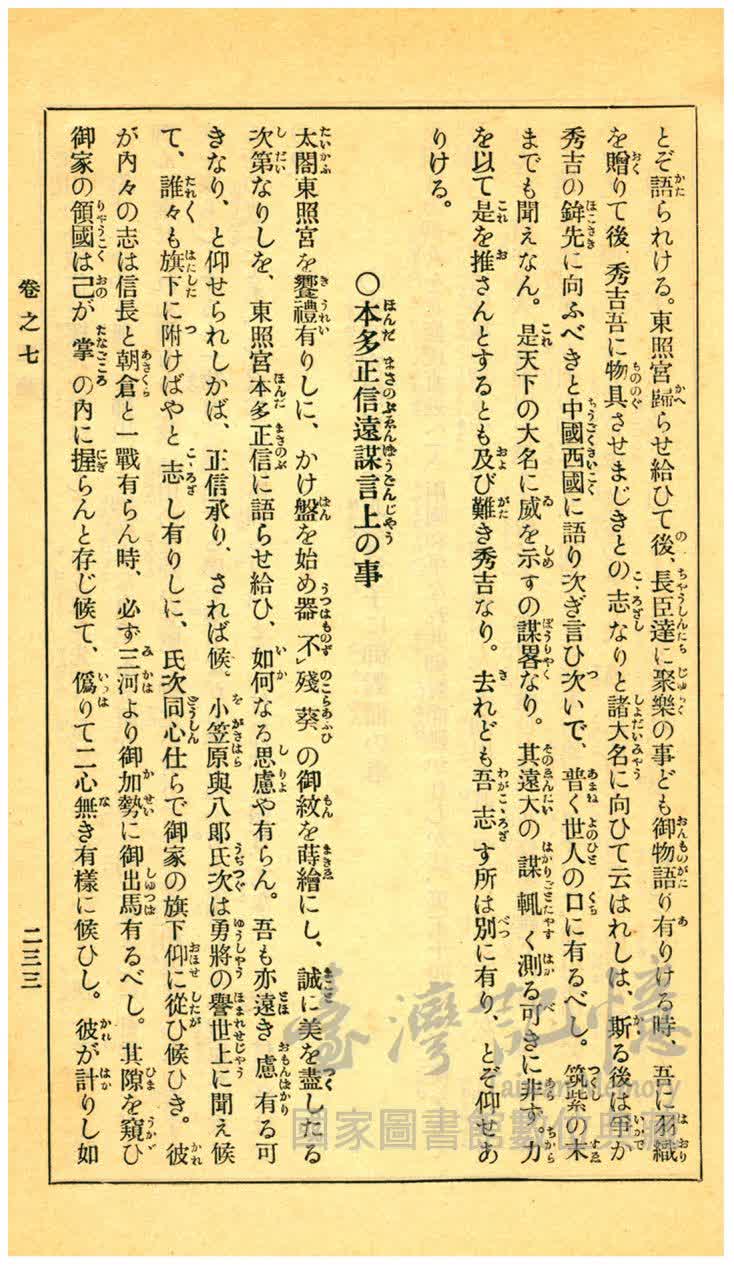 とぞ語られける。東照宮歸らせ給ひて後、長臣達に聚樂の事ども御物語り有りける時、吾に羽織
を贈りて後、秀吉吾に物具させまじきとの志なりと諸大名に向ひて云はれしは、斯る後は爭か
秀吉の鋒先に向ふべきと中國西國に語り次ぎ言ひ次いで、普く世人の口に有るべし。筑紫の末
までも聞えなん。是天下の大名に威を示すの謀畧なり。其遠大の謀輙く測る可きに非ず。力
を以て是を推さんとするとも及び難き秀吉なり。去れども吾志す所は別に有り、とぞ仰せあ
りける。
○本多正信遠謀言上の事
太閤東照宮を饗禮有りしに、かけ盤を始め器不殘葵の御紋を蒔繪にし、誠に美を盡したる
次第なりしを、東照宮本多正信に語らせ給ひ、如何なる思慮や有らん。吾も亦遠き慮有る可
きなり、と仰せられしかば、正信承り、されば候。小笠原與八郎氏次は勇將の譽世上に聞え候
て、誰々も旗下に附けばやと志し有りしに、氏次同心仕らで御家の旗下仰に從ひ候ひき。彼
が內々の志は信長と朝倉と一戰有らん時、必ず三河より御加勢に御出馬有るべし。其隙を窺ひ
御家の領國は己が掌の內に握らんと存じ候て、僞りて二心無き有樣に候ひし。彼が計りし如
卷之七
二三三
臺灣記憶
Taiwan Memory
國家圖書館數位典藏